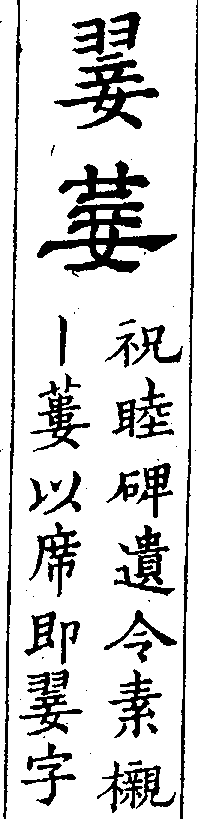 翣
菨
祝睦碑遺令素櫬
丨蔞以席即翣字